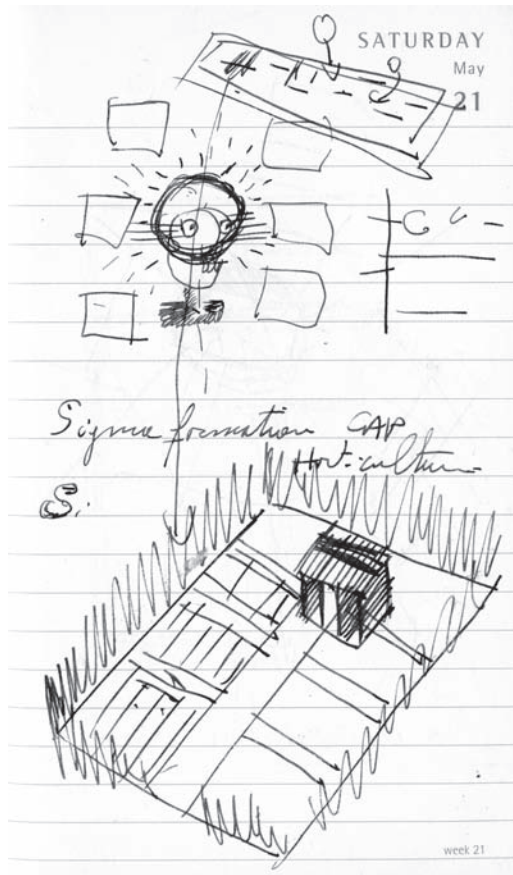 SATURDAY
May
21
Sigma formation GAP
Horticulture
S.
week 21